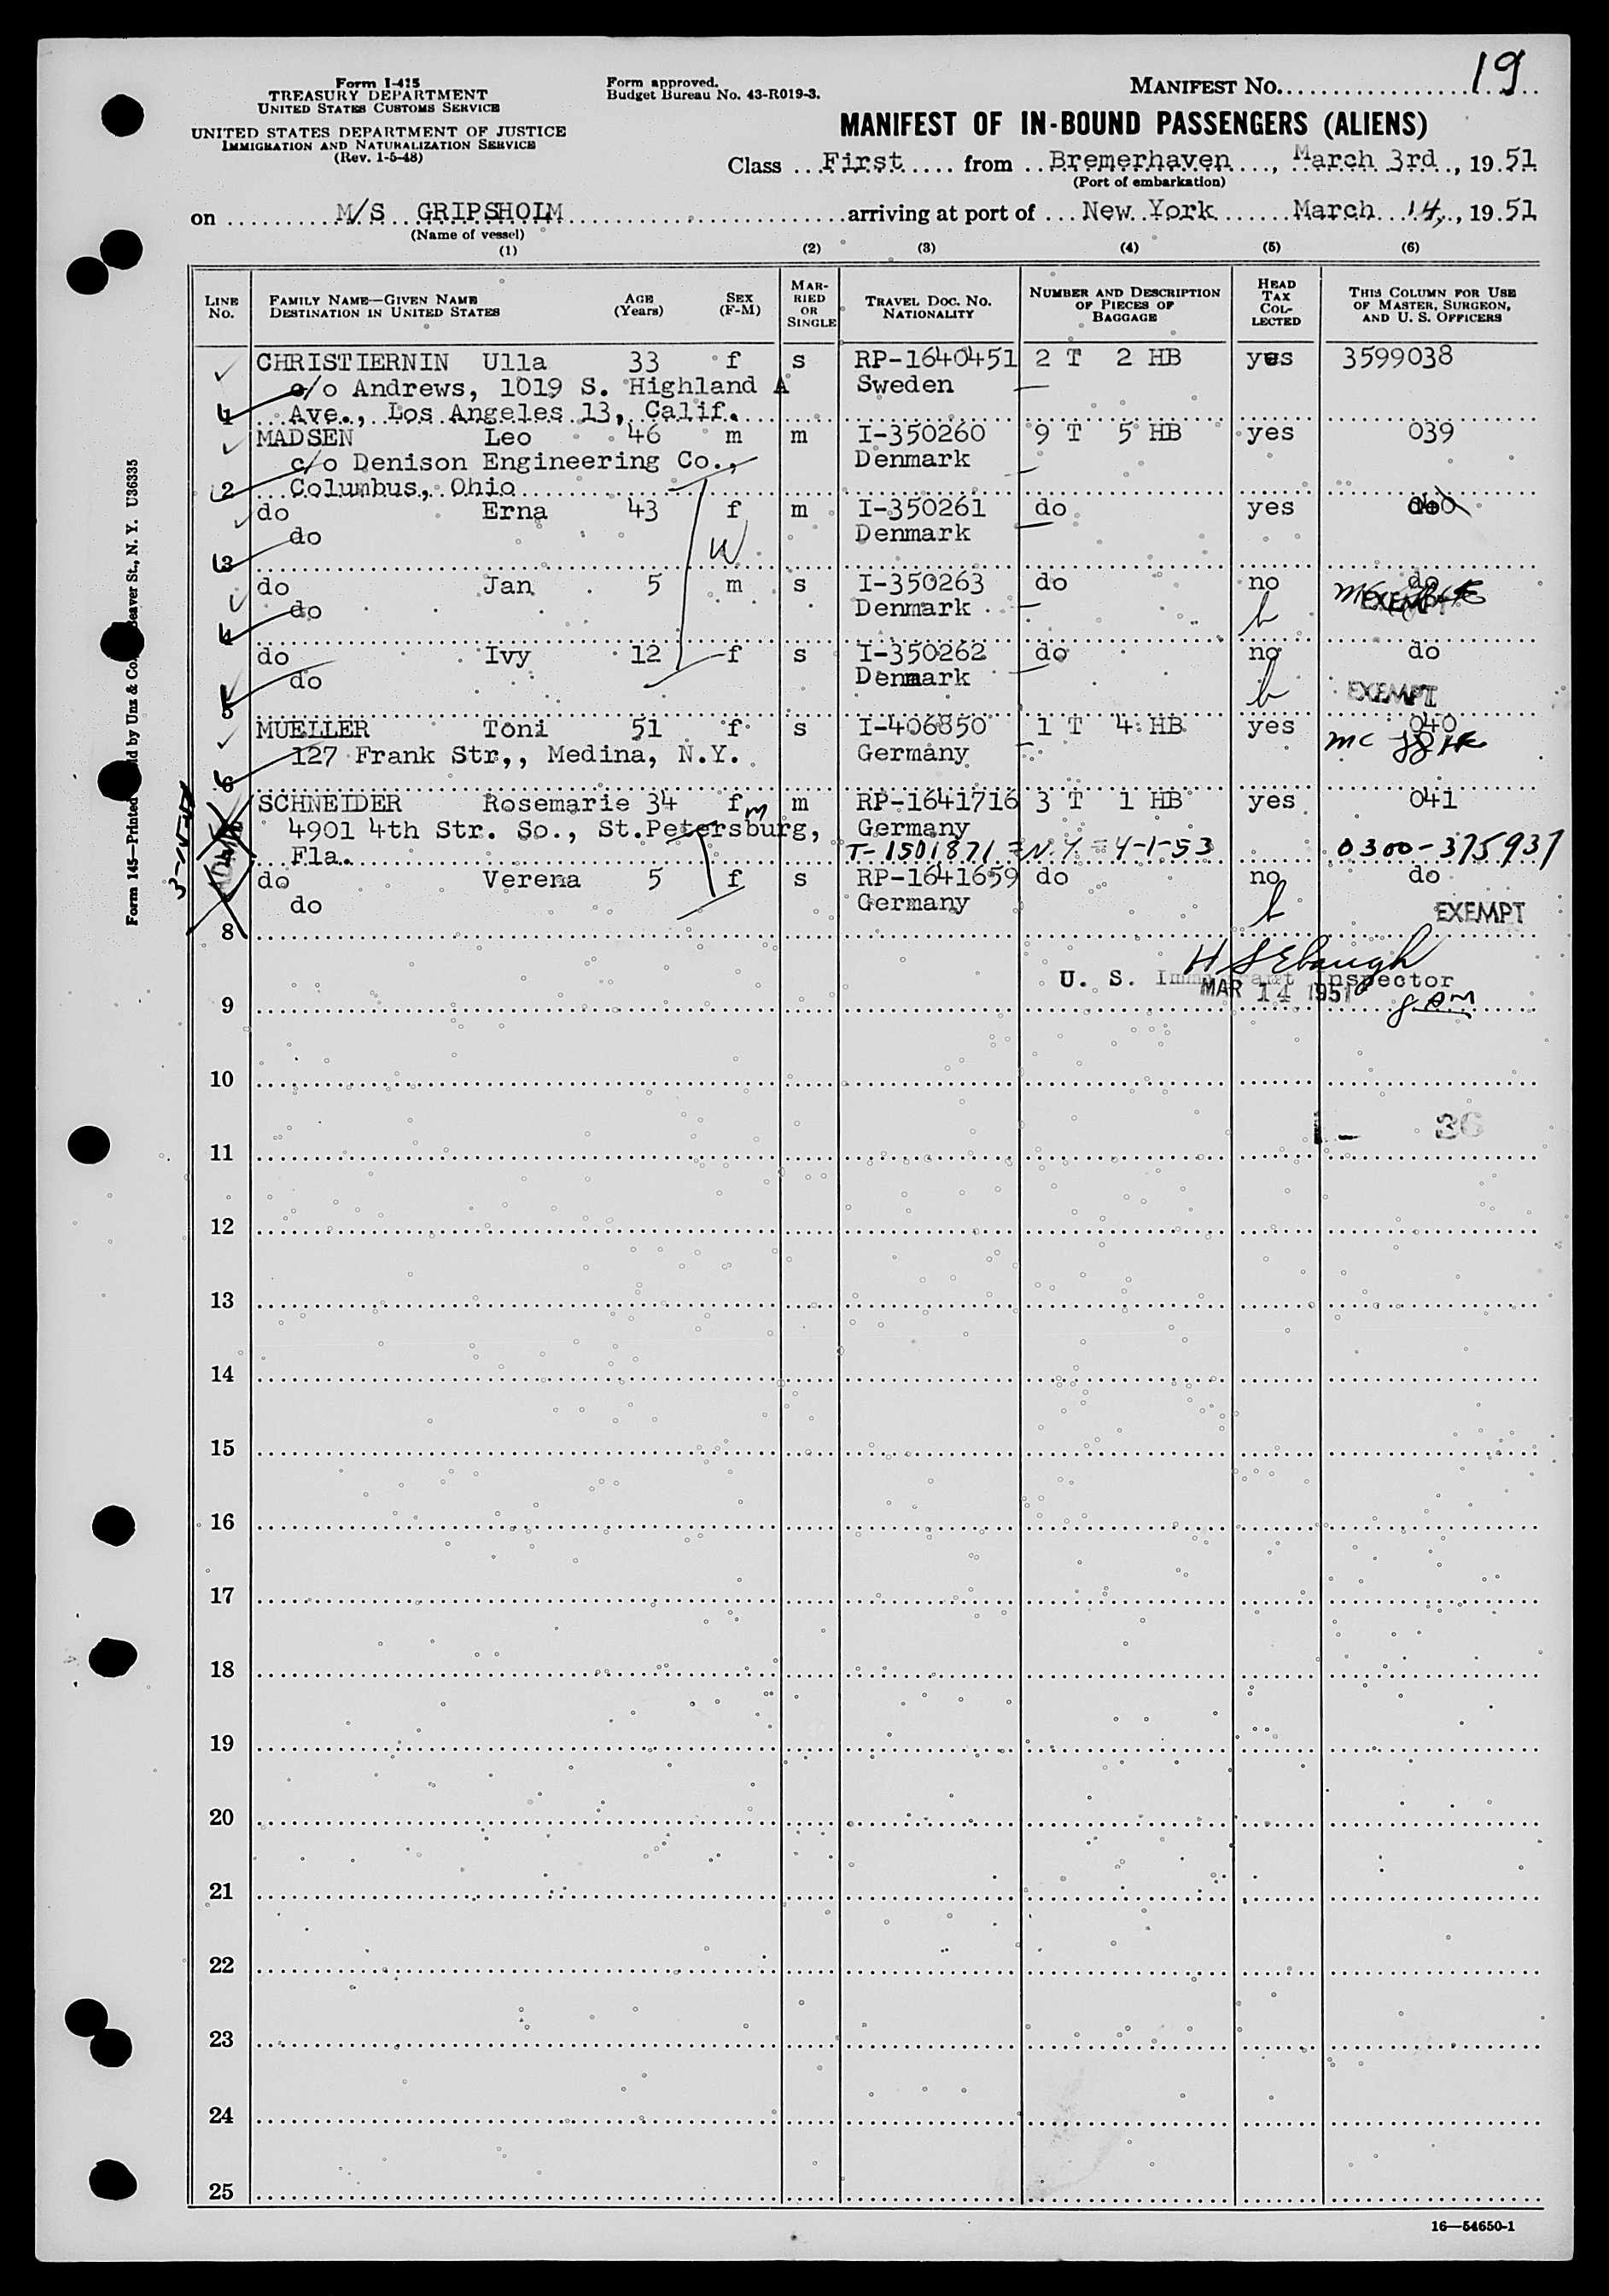 Form I-415
TREASURY DEPARTMENT
UNITED STATES CUSTOMS SERVICE
UNITED STATES DEPARTMENT OF JUSTICE
IMMIGRATION AND NATURALIZATION SERVICE
(Rev. 1-5-48)
Form approved.
Budget Bureau No. 43-R019-3.
MANIFEST NO. 19
MANIFEST OF IN-BOUND PASSENGERS (ALIENS)
Class First from Bremerhaven, March 3rd, 1951
(Port of embarkation)
on M/S GRIPSHOLM arriving at port of New York March 14, 1951
(Name of vessel)
(1) (2) (3) (4) (5) (6)
LINE NO. FAMILY NAME—GIVEN NAME DESTINATION IN UNITED STATES AGE (Years) SEX (F-M) MARRIED OR SINGLE TRAVEL DOC. NO. NATIONALITY NUMBER AND DESCRIPTION OF PIECES OF BAGGAGE HEAD TAX COLLECTED THIS COLUMN FOR USE OF MASTER, SURGEON, AND U. S. OFFICERS
CHRISTIERNIN Ulla 33 f s RP-1640451 2 T 2 HB yes 3599038
c/o Andrews, 1019 S. Highland A Sweden
1 Ave., Los Angeles 13, Calif.
MADSEN Leo 46 m m I-350260 9 T 5 HB yes 039
c/o Denison Engineering Co., Denmark
2 Columbus, Ohio
do Erna 43 f m I-350261 do yes
do Denmark
3
do Jan 5 m s I-350263 do no do
do Denmark EXEMPT
4
do Ivy 12 f s I-350262 do no do
do Denmark EXEMPT
5
MUELLER Toni 51 f s I-406850 1 T 4 HB yes 040
127 Frank Str,, Medina, N.Y. Germany
6
SCHNEIDER Rosemarie 34 f m m RP-1641716 3 T 1 HB yes 041
4901 4th Str. So., St.Petersburg, Germany
Fla. T-1501871 = N.Y. = 4-1-53 0300-375937
do Verena 5 f s RP-1641659 do no do
do Germany EXEMPT
8
H S Ebaugh
U. S. Immigrant Inspector
MAR 14 1951
9
10
36
11
12
13
14
15
16
17
18
19
20
21
22
23
24
25
16—54650-1
3-15-51